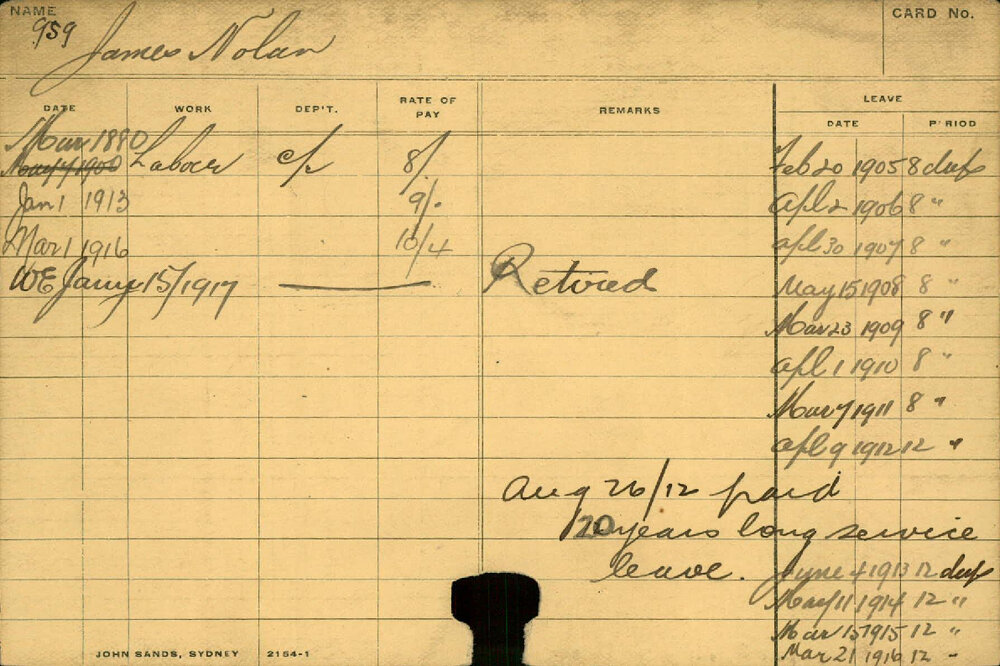 NAME
CARD No.
959 James Nolan
DATE WORK DEP'T. RATE OF PAY REMARKS LEAVE
DATE PERIOD
Mar 1880
May 7 1900 Labour 8/. Feb 20 1905 8 days
Jan 1 1913 9/- Apl 2 1906 8 "
Mar 1 1916 10/4 Apl 30 1907 8 "
WE Jany 15/1917 Retired May 15 1908 8 "
Mar 23 1909 8 "
Apl 1 1910 8 "
Mar 7 1911 8 "
Apl 9 1912 12 "
Aug 26/12 paid
20 years long service
leave. June 4 1913 12 days
May 11 1914 12 "
Mar 15 1915 12 "
Mar 21 1916 12 -
JOHN SANDS, SYDNEY 2154-1